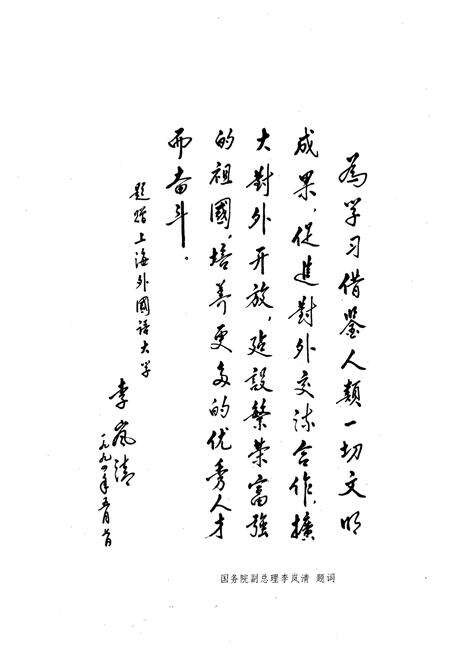 為学习借鉴人類一切文明
成果，促進對外交流合作，擴
大對外开放，建設繁荣富强
的祖國，培养更多的优秀人才
而奋斗。
题赠上海外國语大学
李岚清
一九九四年五月
国务院副总理李岚清 题词